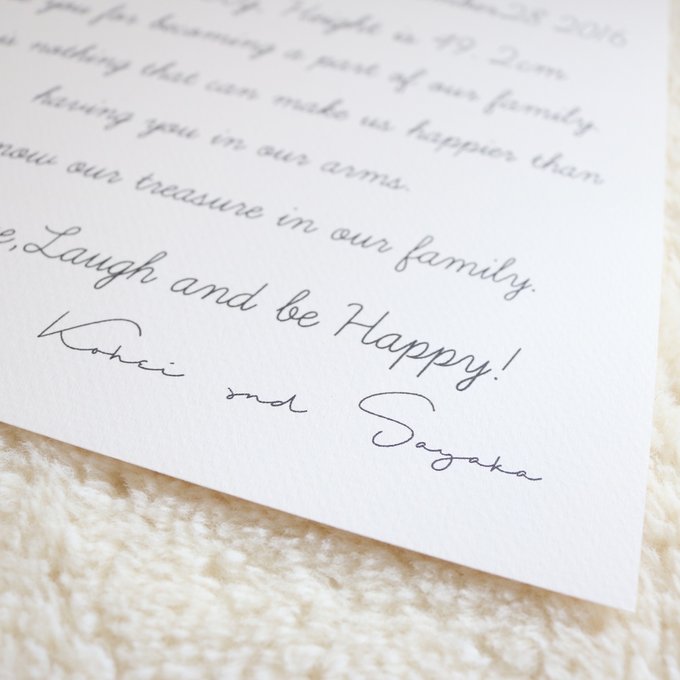 28 2016
Height is 49.2cm
you for becoming a part of our family
is nothing that can make us happier than
having you in our arms.
now our treasure in our family.
Laugh and be Happy!
Kohei and Sayaka